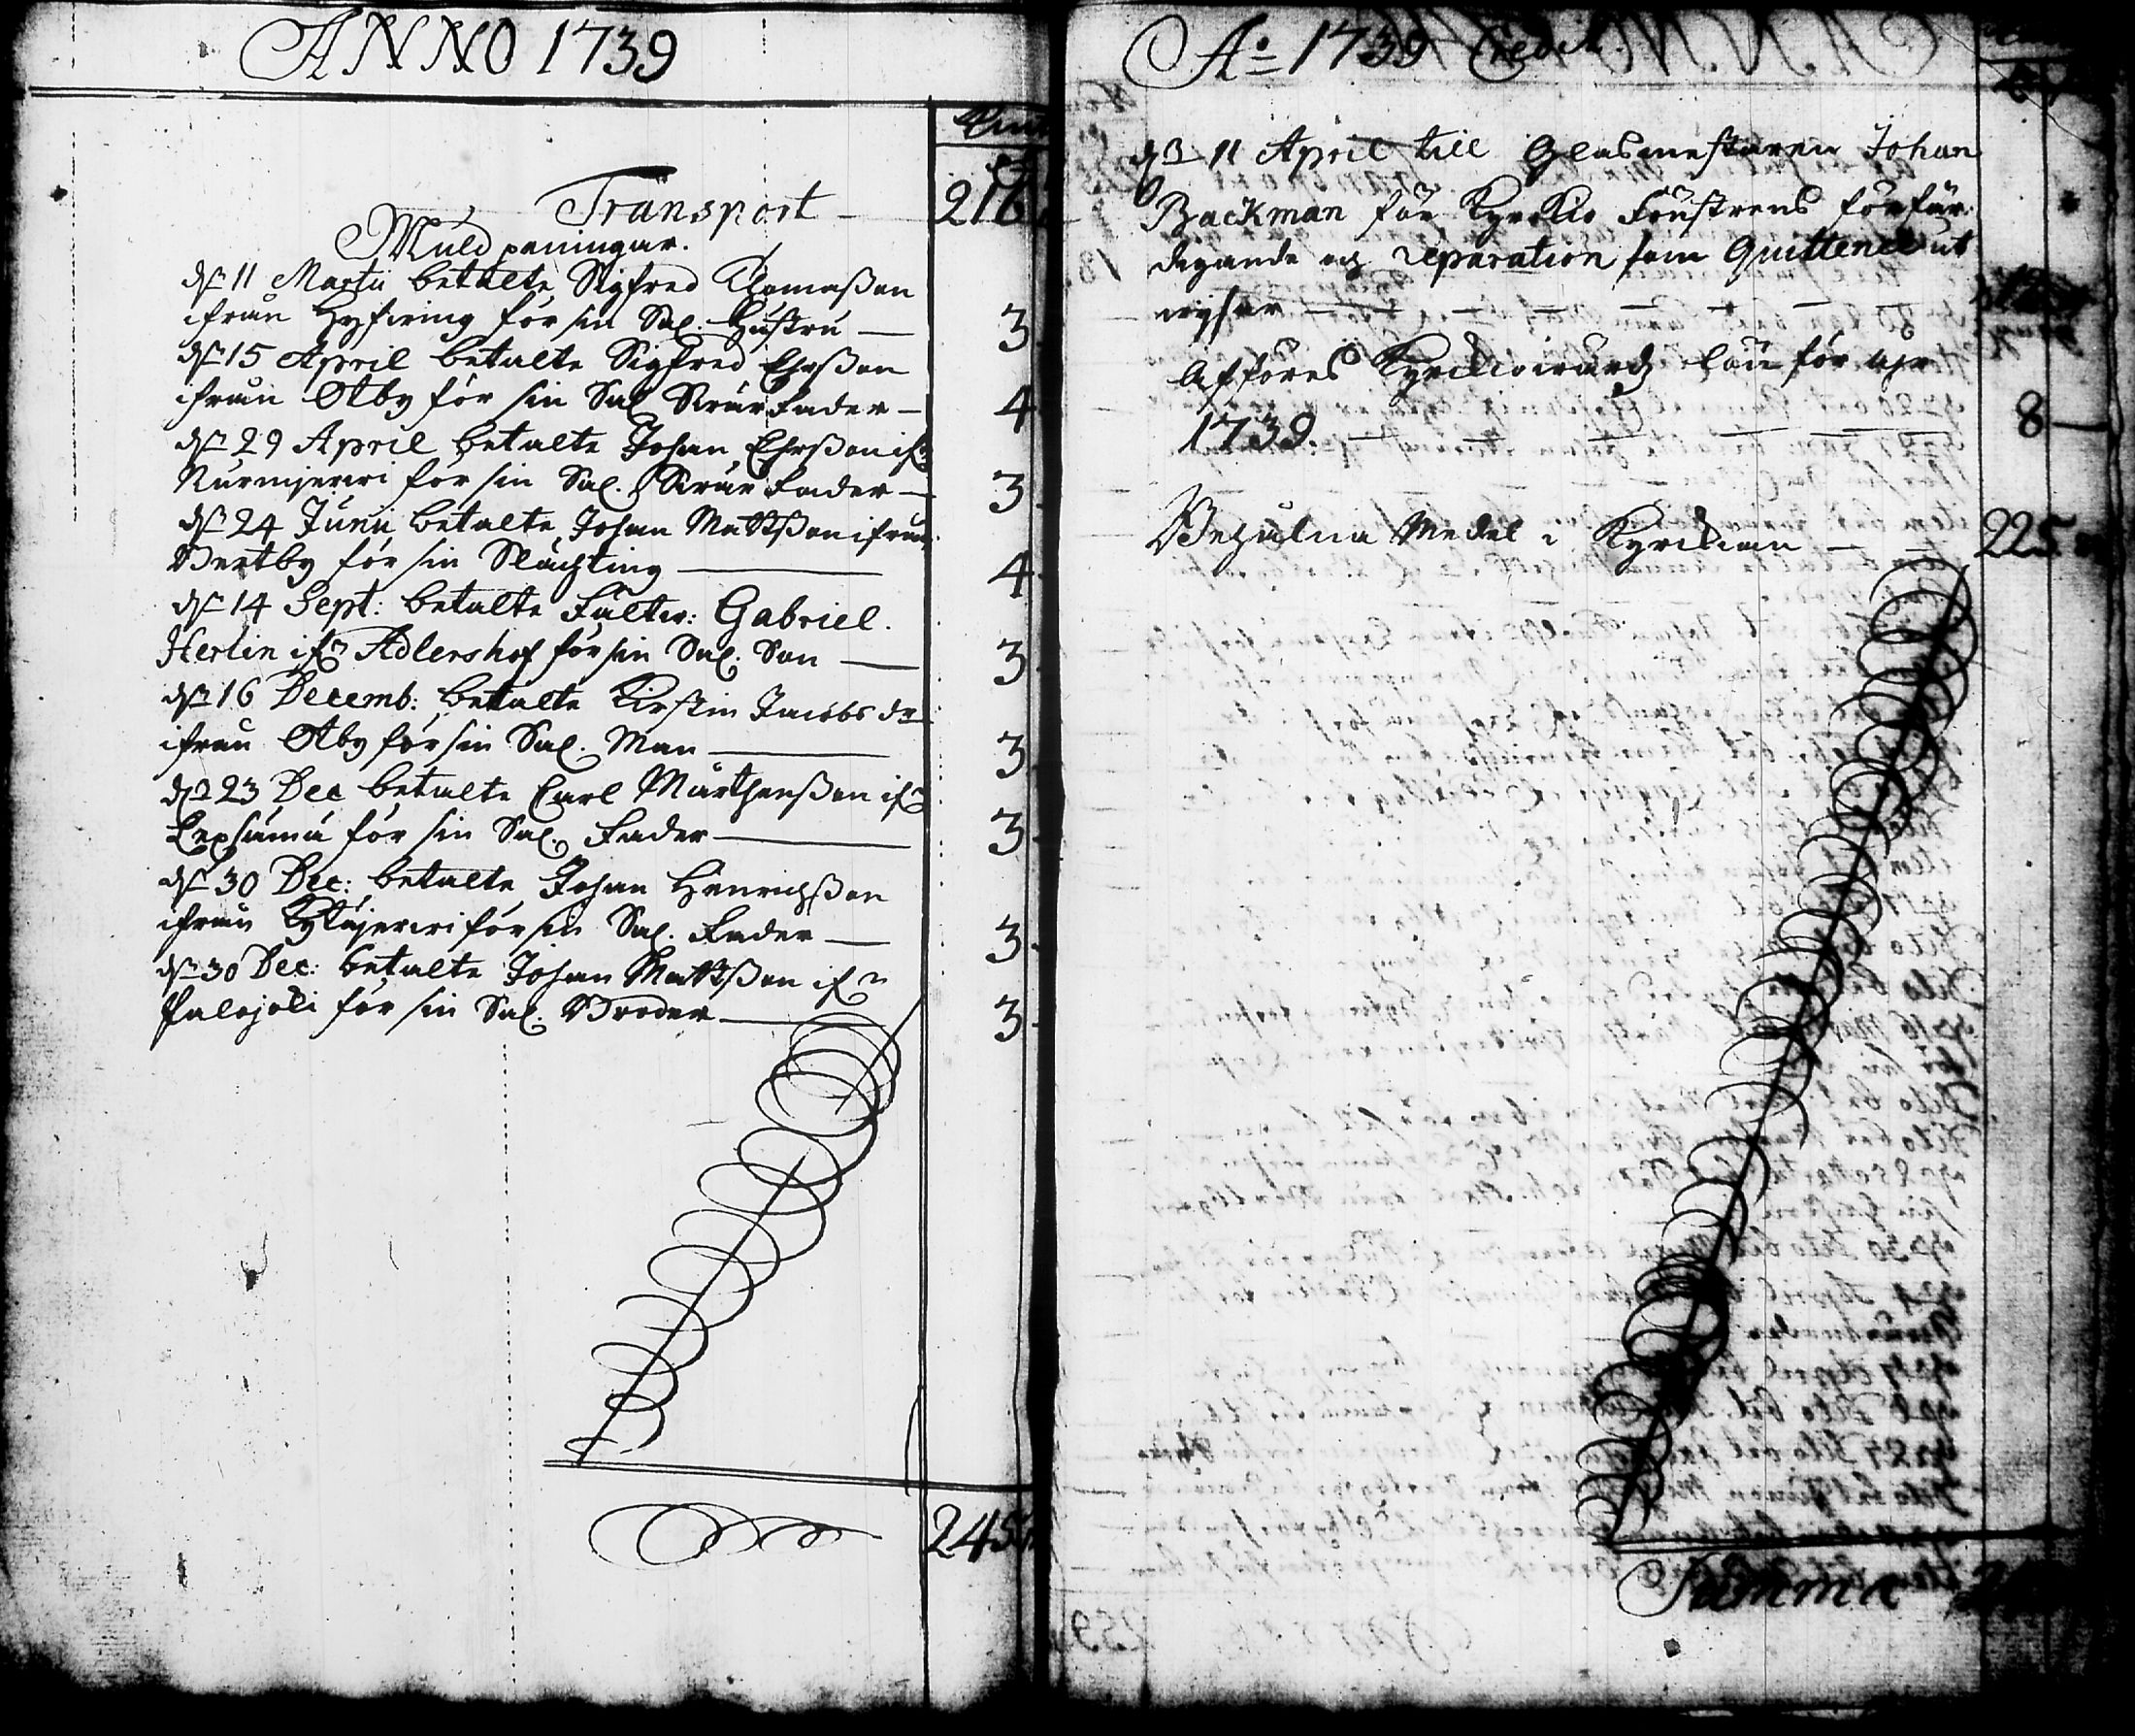 ANNO 1739
Transport — 216
Muld peningar.
dn 11 Martii betalte Sigfred Thomaßon
ifrån Hyfwing för sin Sal. Hustru — 3
dn 15 April betalte Sigfred Ehrßon
ifrån Otby för sin Sal Swär Fader — 4
dn 29 April betalte Johan Ehrßon ifn
Nurmjerwi för sin Sal. Swär Fader — 3
dn 24 Junii betalte Johan Mattßon ifrån
Bertby för sin Slächting — 4
dn 14 Sept: betalte Fältw: Gabriel
Herlin ifn Adlershof för sin Sal. Son — 3
dn 16 Decemb: betalte Kirstin Jacobs dr
ifrån Otby för sin Sal. Man — 3
dn 23 Dec betalte Carl Mårthenßon ifn
Lepsämä för sin Sal. Fader — 3
dn 30 Dec: betalte Johan Henrichßon
ifrån Kytäjerwi för sin Sal. Fader — 3
dn 30 Dec: betalte Johan Mattßon ifn
Palojoki för sin Sal. Broder — 3
245
Ao 1739 Credit.
dn 11 April till Glasmestaren Johan
Backman för Kyrckio Fönstrens förfär
digande och reparation som Quittencet ut
wijsar — — — — — 12
Afföres Kyrckiowärd lön för åhr
1739. — — — — — 8 —
Behåldna Medel i Kyrckian — — 225
Summa